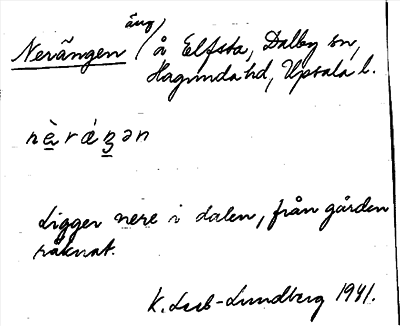 äng
Nerängen / å Elfsta, Dalby sn,
Hagunda hd, Upsala l.
nè̱rάᶇ̱ən
Ligger nere i dalen, från gården
räknat.
K. Leeb-Lundberg 1941.